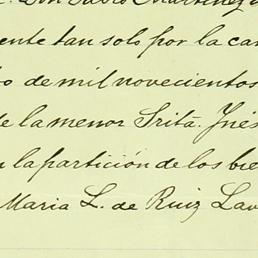 Don Pablo Martinez
ente tan solo por la can
o de mil novecientos
e la menor Srita. Inés
n la partición de los bie
Maria L. de Ruiz Lav